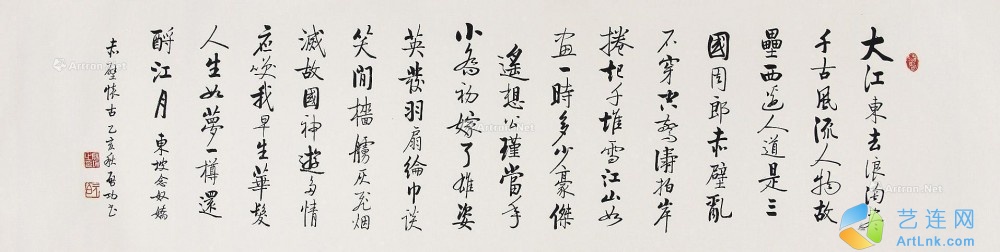 大江東去浪淘尽
千古風流人物故
壘西邊人道是三
國周郎赤壁亂
石穿空驚濤拍岸
捲起千堆雪江山如
畫一時多少豪傑
遙想公瑾當年
小喬初嫁了雄姿
英發羽扇綸巾談
笑間檣艣灰飛烟
滅故國神遊多情
應笑我早生華髮
人生如夢一樽還
酹江月 東坡念奴嬌
赤壁懷古 乙亥秋 啟功书
Artron.Net
艺连网
ArtLnk.com